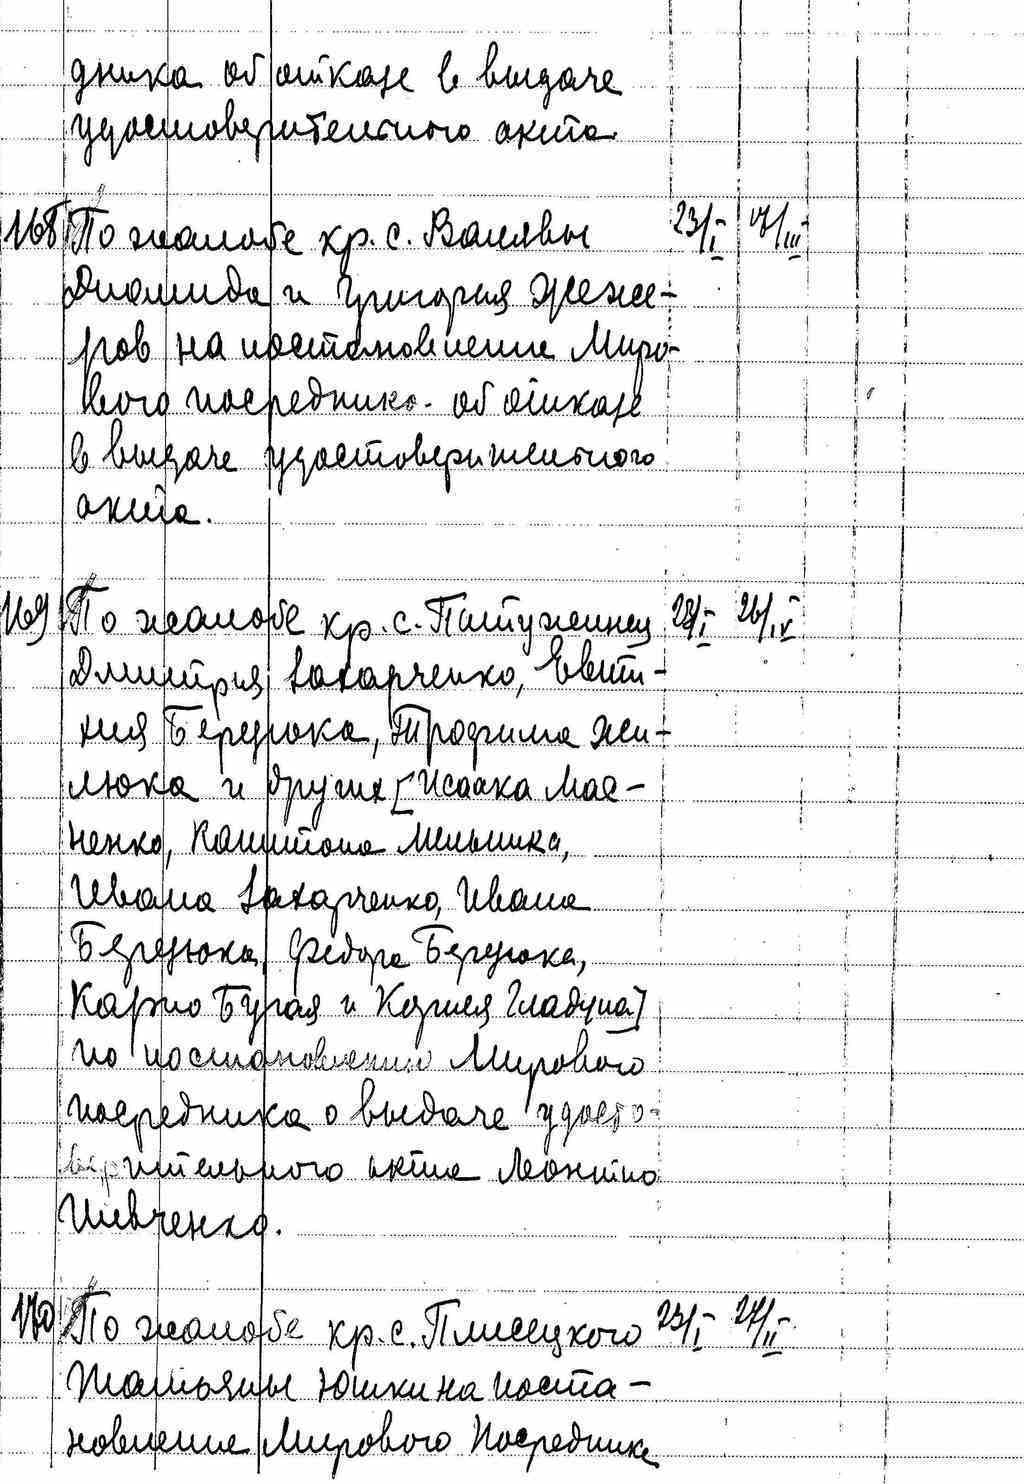 дника об отказе в выдаче
удостоверительного акта.
168 По жалобе кр. с. Валявы 23/I 7/III
Диомида и Григория Жеже-
ров на постановление Миро-
вого посредника об отказе
в выдаче удостоверительного
акта.
169 По жалобе кр. с. 28/I 26/IV
Дмитрия Захарченко, Евти-
хия Березюка, Трофима Жи-
люка и других [Исаака Мас-
ненко, Капитона Мельника,
Ивана Захарченко, Ивана
Березюка, Федора Березюка,
Карпо Бугая и Корнея Гладуна]
по постановлению Мирового
посредника о выдаче удосто-
верительного акта Леонтию
Шевченко.
170 По жалобе кр. с. Плисецкого 23/I 27/II
Татьяны Юшки на поста-
новление Мирового Посредника